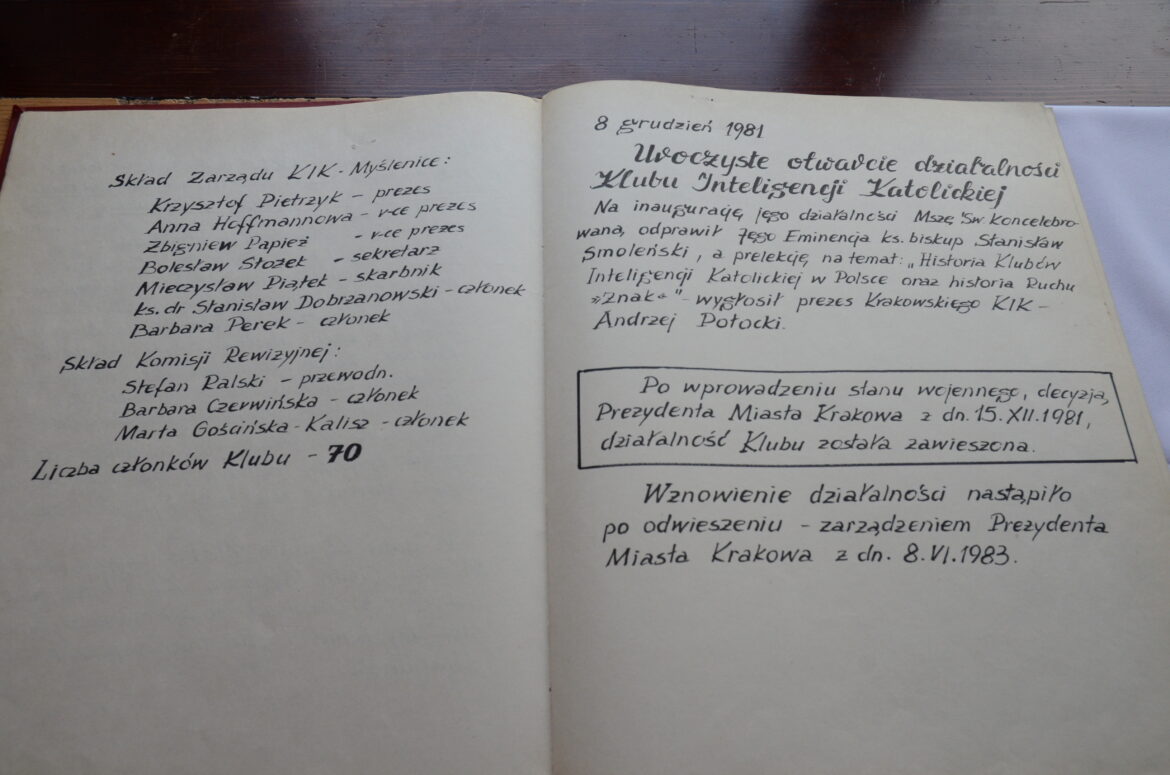 Skład Zarządu KIK - Myślenice:
Krzysztof Pietrzyk - prezes
Anna Hoffmannowa - v-ce prezes
Zbigniew Papież - v-ce prezes
Bolesław Stożek - sekretarz
Mieczysław Piątek - skarbnik
ks. dr Stanisław Dobrzanowski - członek
Barbara Perek - członek
Skład Komisji Rewizyjnej:
Stefan Ralski - przewodn.
Barbara Czerwińska - członek
Marta Gościńska - Kalisz - członek
Liczba członków Klubu - 70
8 grudzień 1981
Uroczyste otwarcie działalności
Klubu Inteligencji Katolickiej
Na inaugurację jego działalności Mszę Św. Koncelebro-
waną, odprawił Jego Eminencja ks. biskup Stanisław
Smoleński, a prelekcję na temat: „Historia Klubów
Inteligencji Katolickiej w Polsce oraz historia Ruchu
»Znak«" - wygłosił prezes Krakowskiego KIK -
Andrzej Potocki.
Po wprowadzeniu stanu wojennego, decyzją
Prezydenta Miasta Krakowa z dn. 15.XII.1981,
działalność Klubu została zawieszona.
Wznowienie działalności nastąpiło
po odwieszeniu - zarządzeniem Prezydenta
Miasta Krakowa z dn. 8.VI.1983.